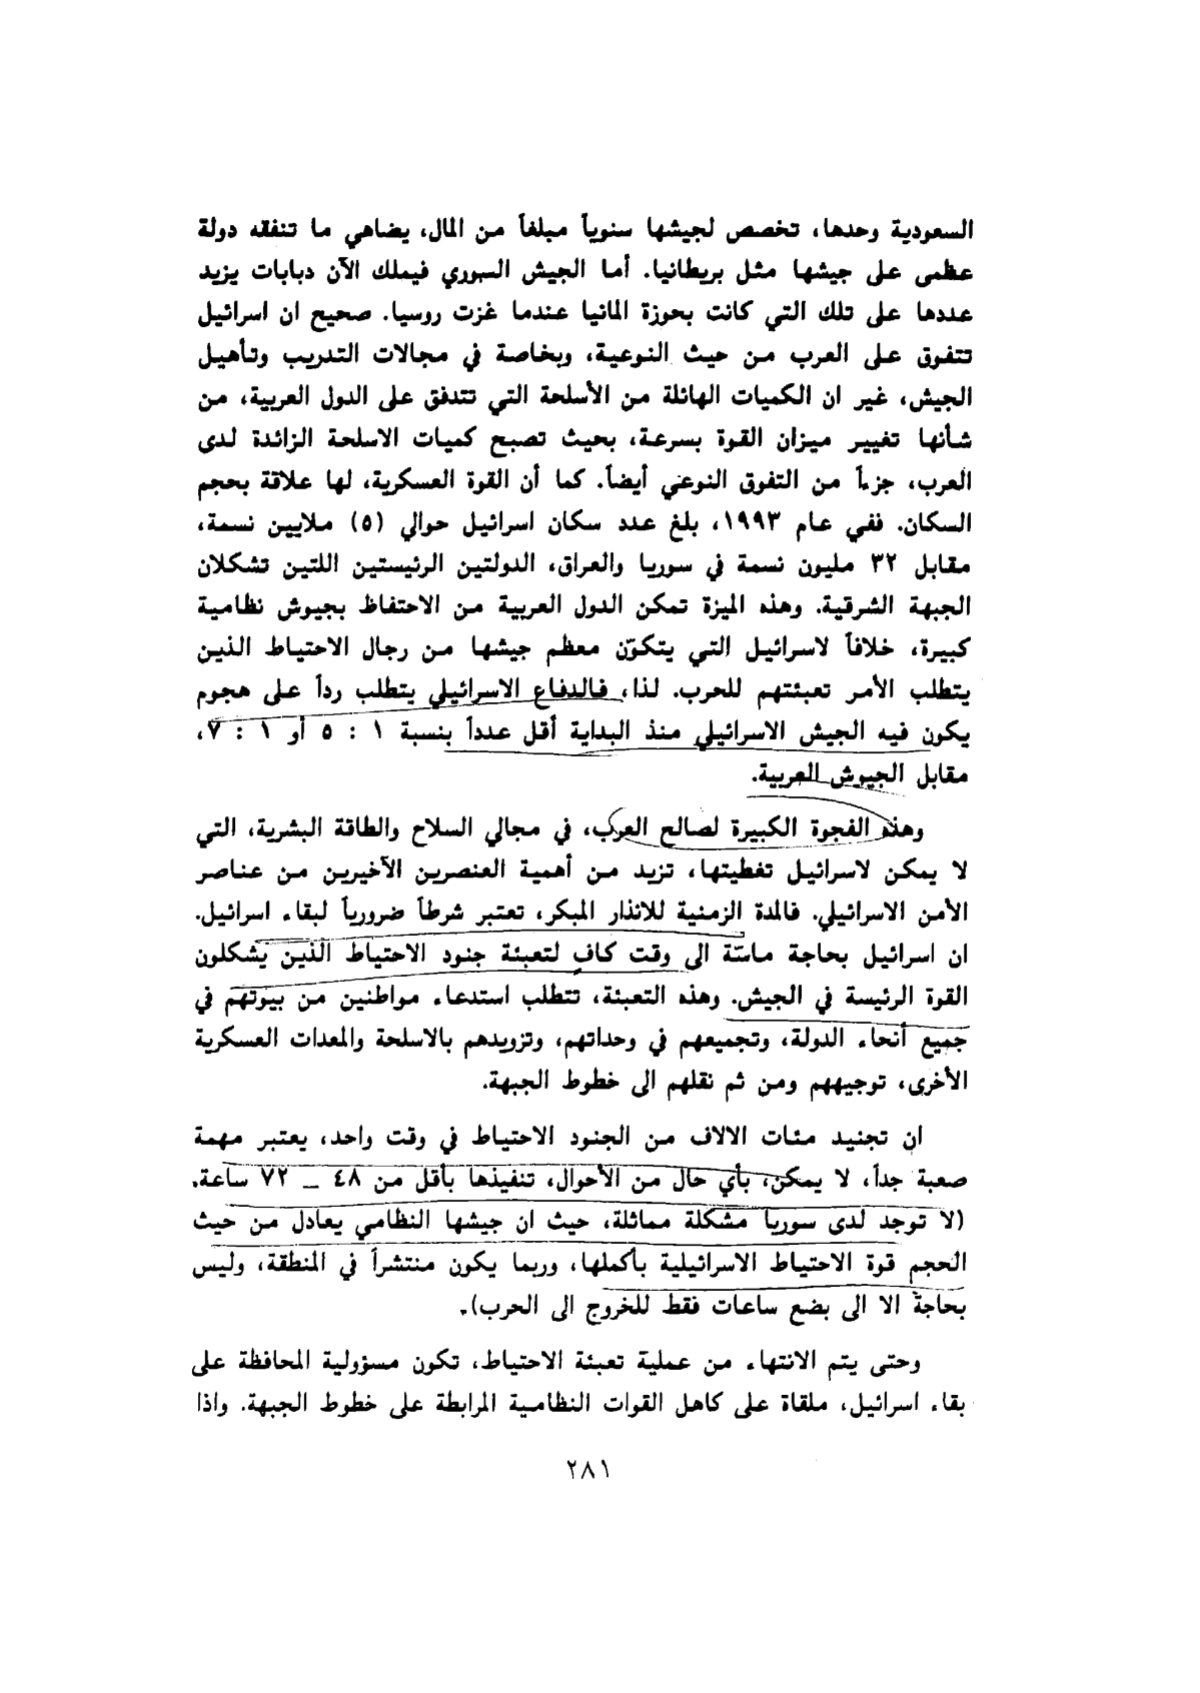 السعودية وحدها، تخصص لجيشها سنوياً مبلغاً من المال، يضاهي ما تنفقه دولة
عظمى على جيشها مثل بريطانيا. أما الجيش السوري فيملك الآن دبابات يزيد
عددها على تلك التي كانت بحوزة المانيا عندما غزت روسيا. صحيح ان اسرائيل
تتفوق على العرب من حيث النوعية، وبخاصة في مجالات التدريب وتأهيل
الجيش، غير ان الكميات الهائلة من الأسلحة التي تتدفق على الدول العربية، من
شأنها تغيير ميزان القوة بسرعة، بحيث تصبح كميات الاسلحة الزائدة لدى
العرب، جزءاً من التفوق النوعي أيضاً. كما أن القوة العسكرية، لها علاقة بحجم
السكان. ففي عام ١٩٩٣، بلغ عدد سكان اسرائيل حوالي (٥) ملايين نسمة،
مقابل ٣٢ مليون نسمة في سوريا والعراق، الدولتين الرئيستين اللتين تشكلان
الجبهة الشرقية. وهذه الميزة تمكن الدول العربية من الاحتفاظ بجيوش نظامية
كبيرة، خلافاً لاسرائيل التي يتكوّن معظم جيشها من رجال الاحتياط الذين
يتطلب الأمر تعبئتهم للحرب. لذا، فالدفاع الاسرائيلي يتطلب رداً على هجوم
يكون فيه الجيش الاسرائيلي منذ البداية أقل عدداً بنسبة ١ : ٥ أو ١ : ٧،
مقابل الجيوش العربية.
وهذه الفجوة الكبيرة لصالح العرب، في مجالي السلاح والطاقة البشرية، التي
لا يمكن لاسرائيل تغطيتها، تزيد من أهمية العنصرين الآخيرين من عناصر
الأمن الاسرائيلي. فالمدة الزمنية للانذار المبكر، تعتبر شرطاً ضرورياً لبقاء اسرائيل.
ان اسرائيل بحاجة ماسّة الى وقت كافٍ لتعبئة جنود الاحتياط الذين يشكلون
القوة الرئيسة في الجيش. وهذه التعبئة، تتطلب استدعاء مواطنين من بيوتهم في
جميع أنحاء الدولة، وتجميعهم في وحداتهم، وتزويدهم بالاسلحة والمعدات العسكرية
الأخرى، توجيههم ومن ثم نقلهم الى خطوط الجبهة.
ان تجنيد مئات الالاف من الجنود الاحتياط في وقت واحد، يعتبر مهمة
صعبة جداً، لا يمكن، بأي حال من الأحوال، تنفيذها بأقل من ٤٨ ــ ٧٢ ساعة.
(لا توجد لدى سوريا مشكلة مماثلة، حيث ان جيشها النظامي يعادل من حيث
الحجم قوة الاحتياط الاسرائيلية بأكملها، وربما يكون منتشراً في المنطقة، وليس
بحاجة الا الى بضع ساعات فقط للخروج الى الحرب).
وحتى يتم الانتهاء من عملية تعبئة الاحتياط، تكون مسؤولية المحافظة على
بقاء اسرائيل، ملقاة على كاهل القوات النظامية المرابطة على خطوط الجبهة. واذا
٢٨١